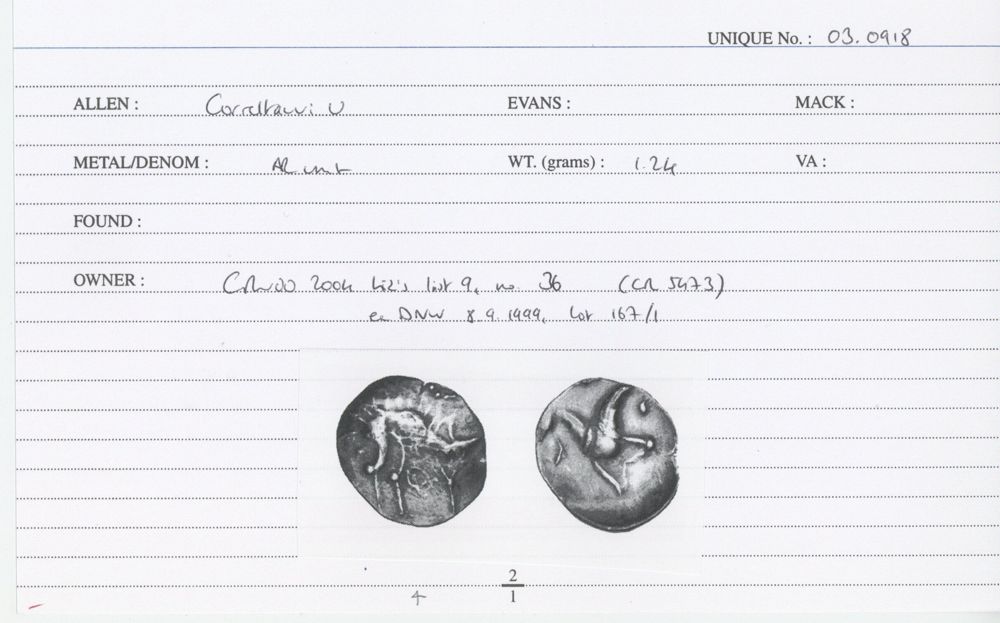 UNIQUE No. : 03.0918
ALLEN : Corieltauvi U EVANS : MACK :
METAL/DENOM : AR unit WT. (grams) : 1.24 VA :
FOUND :
OWNER : 2004 Liz's list 9, no. 36 (CR 5473)
ex DNW 8.9.1999, lot 167/1
4
2
1